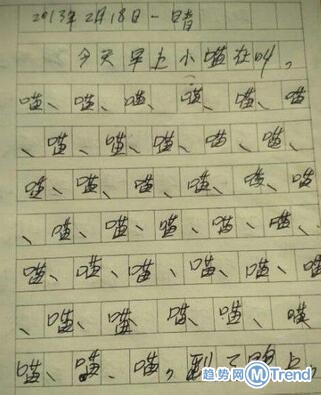 2013年2月18日一晴
今天早上小喵在叫。
喵、喵、喵、喵、喵、喵
、喵、喵、喵、喵、喵、
喵、喵、喵、喵、喵、喵
、喵、喵、喵、喵、喵、
喵、喵、喵、喵、喵、喵
、喵、喵、喵、喵、喵
喵、喵、喵。到了晚上。
趋势网 MTrend